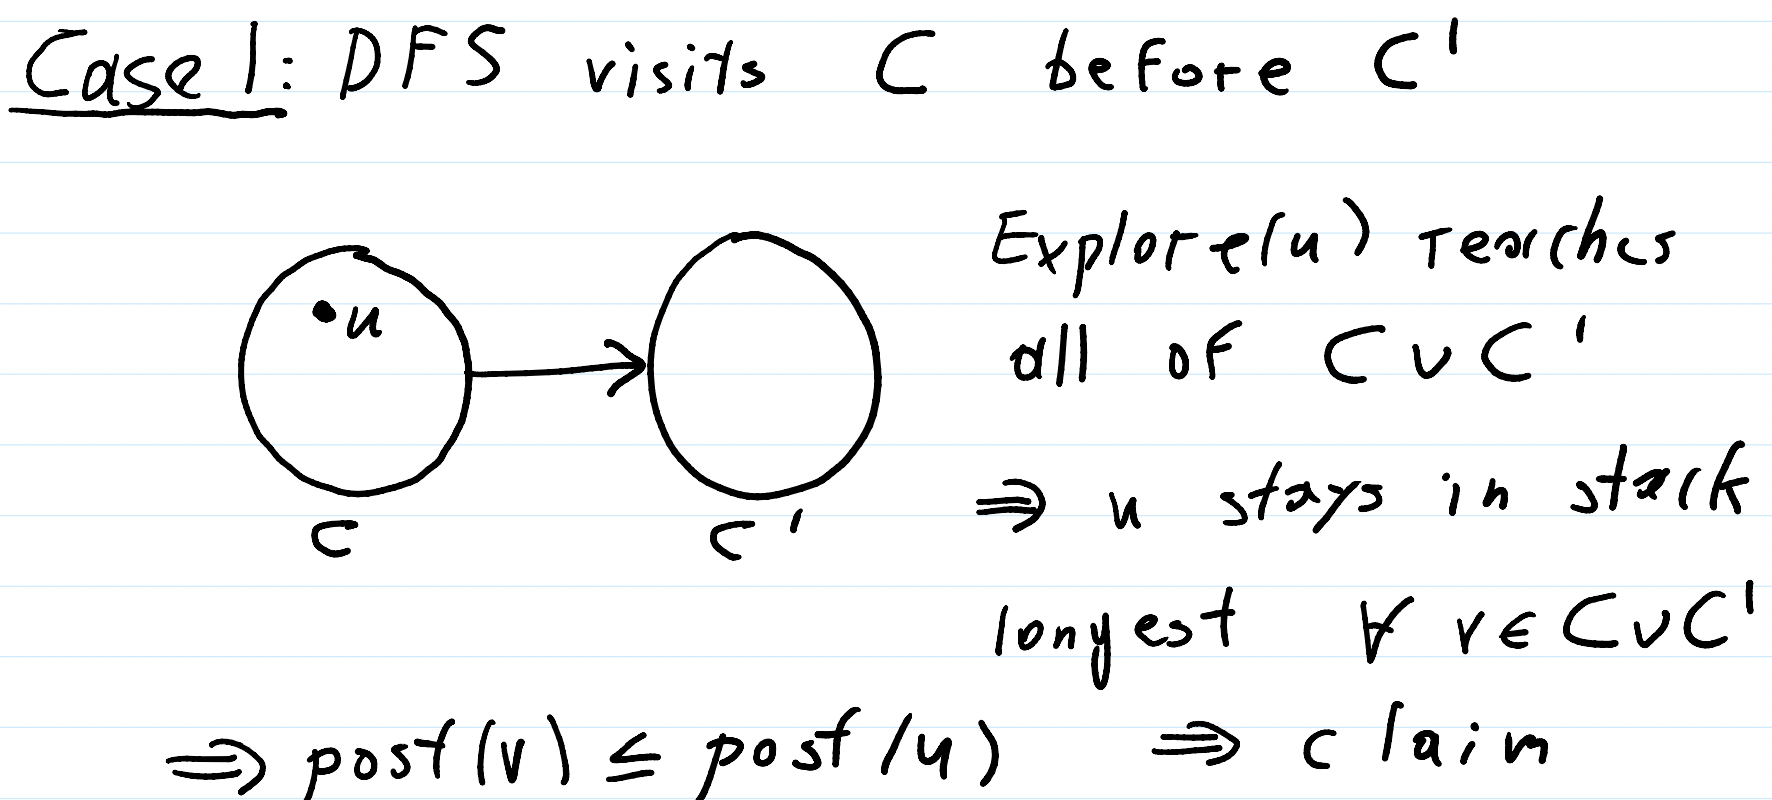 Case 1: DFS visits C before C'
Explore(u) reaches
all of C ∪ C'
u
⇒ u stays in stack
C
C'
longest ∀ v ∈ C ∪ C'
⇒ post(v) ≤ post(u) ⇒ claim